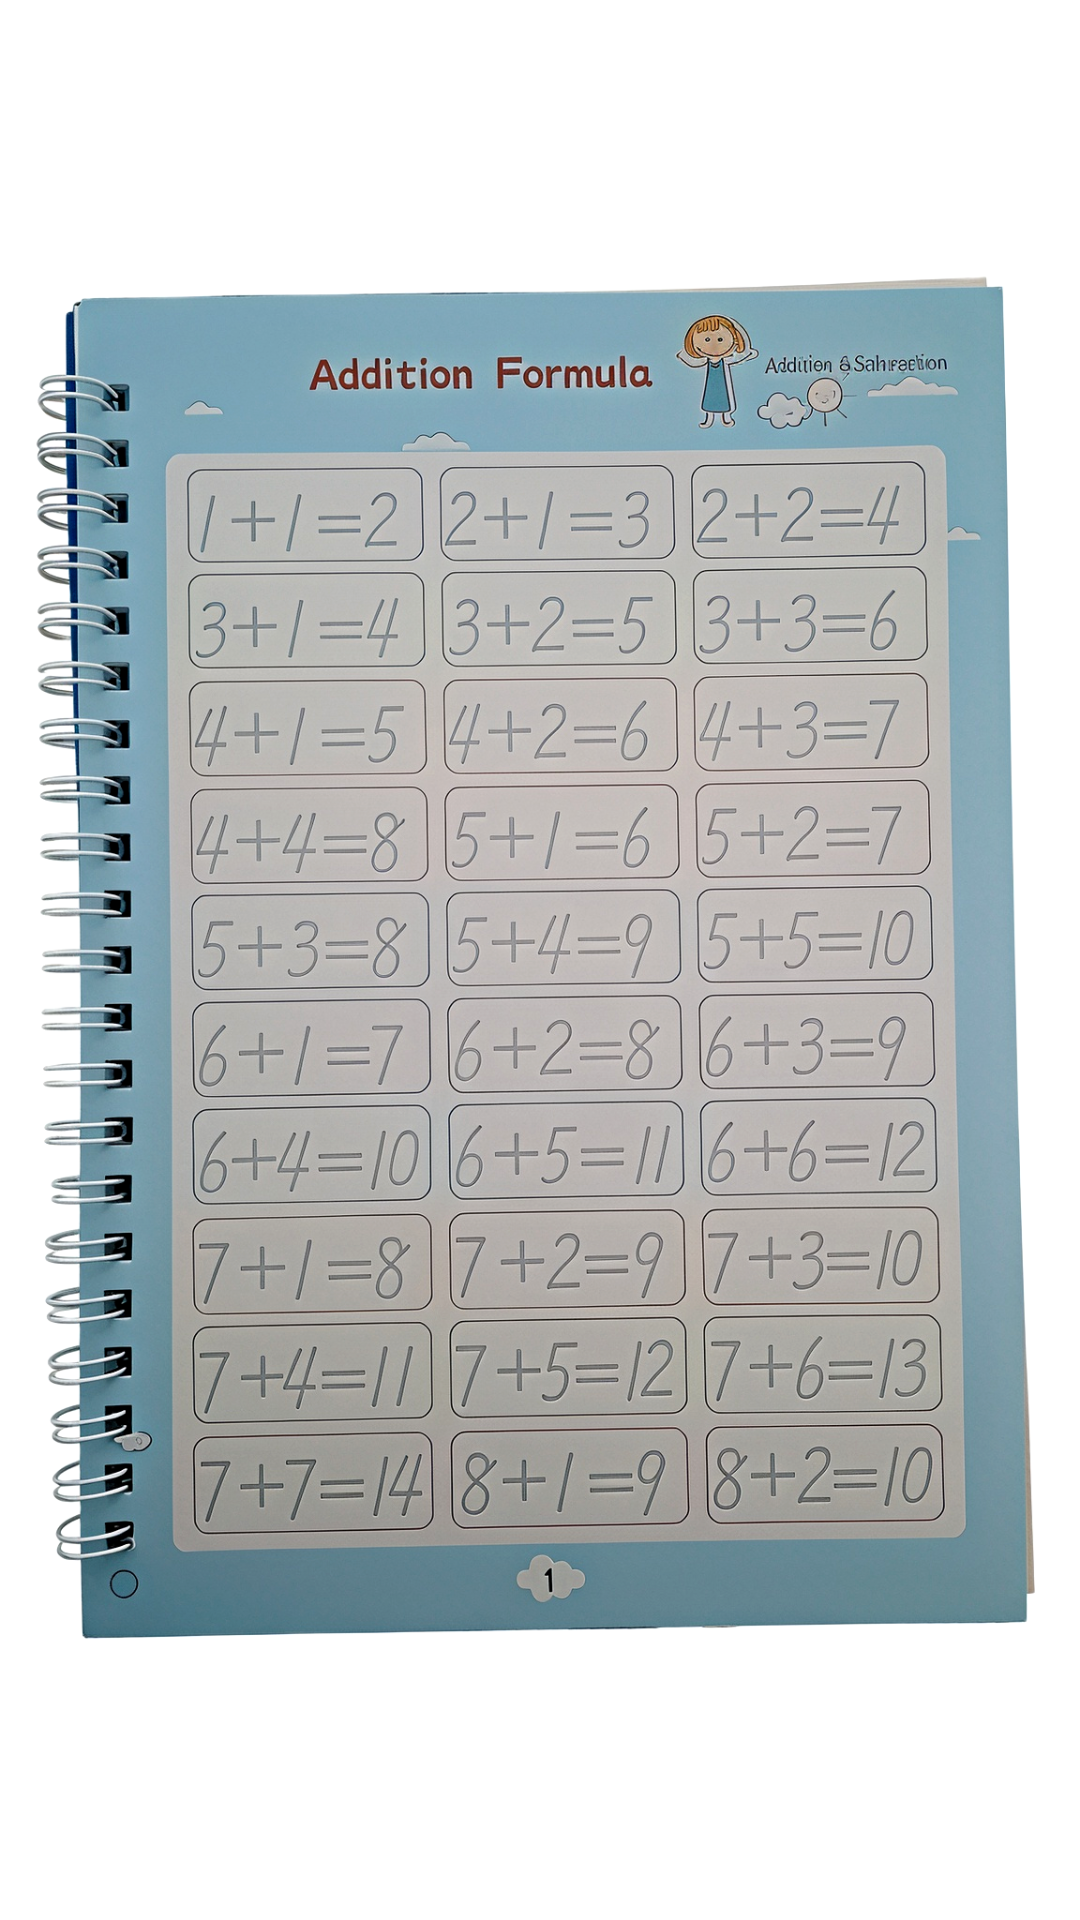 Addition Formula
Addition &
1+1=2 2+1=3 2+2=4
3+1=4 3+2=5 3+3=6
4+1=5 4+2=6 4+3=7
4+4=8 5+1=6 5+2=7
5+3=8 5+4=9 5+5=10
6+1=7 6+2=8 6+3=9
6+4=10 6+5=11 6+6=12
7+1=8 7+2=9 7+3=10
7+4=11 7+5=12 7+6=13
7+7=14 8+1=9 8+2=10
1